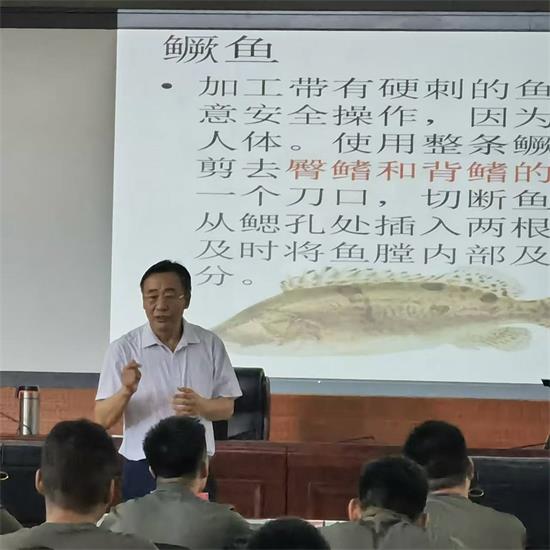 鳜鱼
• 加工带有硬刺的鱼
意安全操作，因为
人体。使用整条鳜
剪去臀鳍和背鳍的
一个刀口，切断鱼
从鳃孔处插入两根
及时将鱼膛内部及
分。